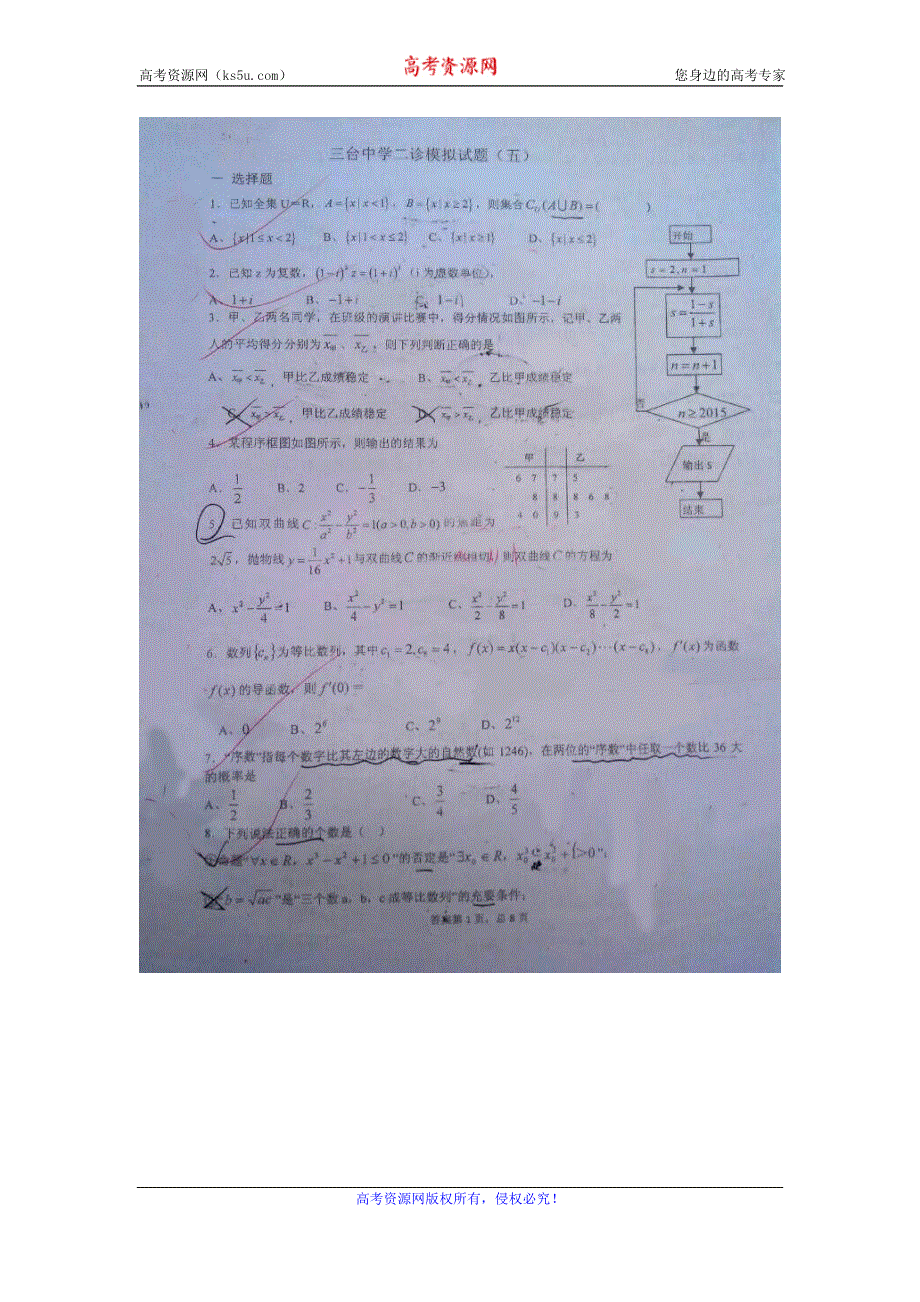 高考资源网（ks5u.com）
高考资源网
您身边的高考专家
三台中学二诊模拟试题（五）
一 选择题
1．已知全集U＝R，A={x|x<1}，B={x|x≥2}，则集合C_U(A∪B)=( )
A、{x|1≤x<2} B、{x|1<x≤2} C、{x|x≥1} D、{x|x≤2}
2．已知z为复数，(1−i)²z=(1+i)³（i为虚数单位），
A．1+i B．−1+i C．1−i D．−1−i
3．甲、乙两名同学，在班级的演讲比赛中，得分情况如图所示，记甲、乙两
人的平均得分分别为x̄甲、x̄乙，则下列判断正确的是
A、x̄甲<x̄乙，甲比乙成绩稳定 B、x̄甲<x̄乙，乙比甲成绩稳定
C、x̄甲>x̄乙，甲比乙成绩稳定 D、x̄甲>x̄乙，乙比甲成绩稳定
4．某程序框图如图所示，则输出的结果为
A．1/2 B．2 C．−1/3 D．−3
甲 乙
6 7 7 5
8 8 8 6 8
4 0 9 3
开始
s=2,n=1
s=(1−s)/(1+s)
n=n+1
否
n≥2015
是
输出s
结束
5．已知双曲线C：x²/a²−y²/b²=1(a>0,b>0)的焦距为
2√5，抛物线y=1/16 x²+1与双曲线C的渐近线相切，则双曲线C的方程为
A、x²−y²/4=1 B、x²/4−y²=1 C、x²/2−y²/8=1 D、x²/8−y²/2=1
6．数列{cₙ}为等比数列，其中c₁=2,c₈=4，f(x)=x(x−c₁)(x−c₂)⋯(x−c₈)，f′(x)为函数
f(x)的导函数，则f′(0)=
A、0 B、2⁶ C、2⁹ D、2¹²
7．“序数”指每个数字比其左边的数字大的自然数(如1246)，在两位的“序数”中任取一个数比36大
的概率是
A、1/2 B、2/3 C、3/4 D、4/5
8．下列说法正确的个数是（ ）
命题“∀x∈R，x³−x²+1≤0”的否定是“∃x₀∈R，x₀³−x₀²+1>0”；
“b=√ac”是“三个数a，b，c成等比数列”的充要条件；
答案第1页，总8页
高考资源网版权所有，侵权必究！